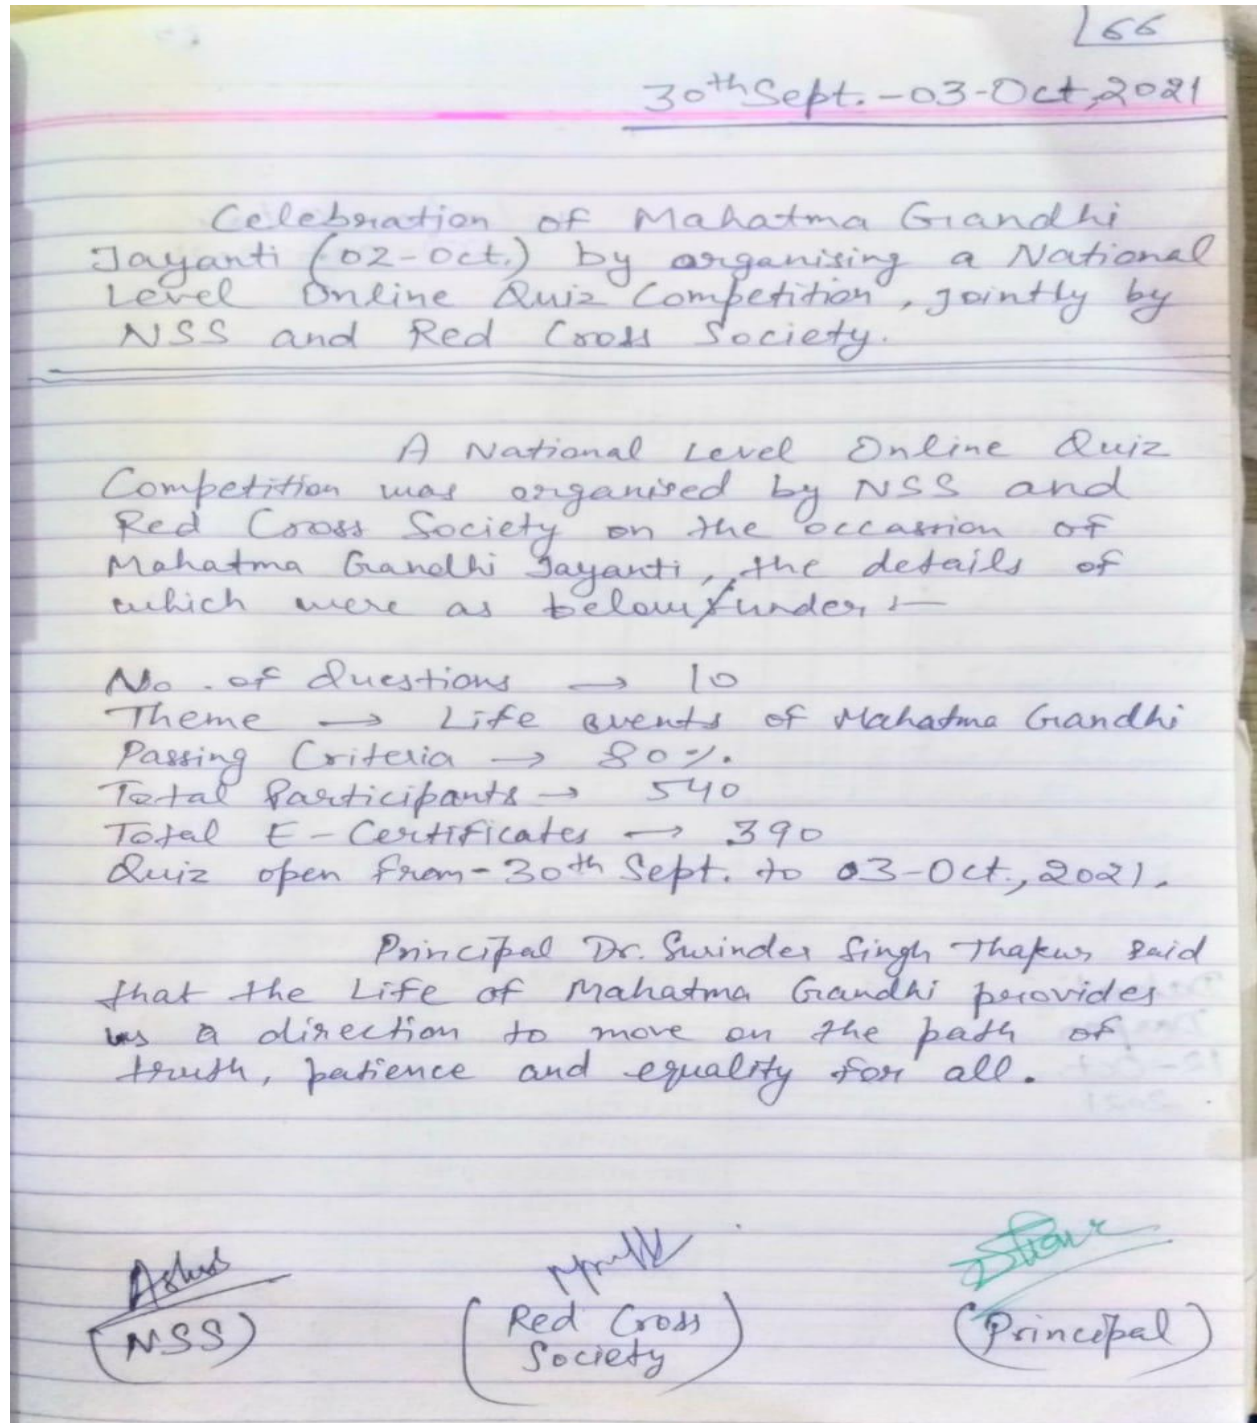 66
30th Sept. - 03-Oct, 2021
Celebration of Mahatma Gandhi
Jayanti (02-Oct.) by organising a National
Level Online Quiz Competition, jointly by
NSS and Red Cross Society.
A National Level Online Quiz
Competition was organised by NSS and
Red Cross Society on the occassion of
Mahatma Gandhi Jayanti, the details of
which were as below/under :-
No. of Questions → 10
Theme → Life events of Mahatma Gandhi
Passing Criteria → 80%.
Total Participants → 540
Total E-Certificates → 390
Quiz open from - 30th Sept. to 03-Oct., 2021.
Principal Dr. Surinder Singh Thakur said
that the Life of Mahatma Gandhi provides
us a direction to move on the path of
truth, patience and equality for all.
(NSS) (Red Cross (Principal)
Society)